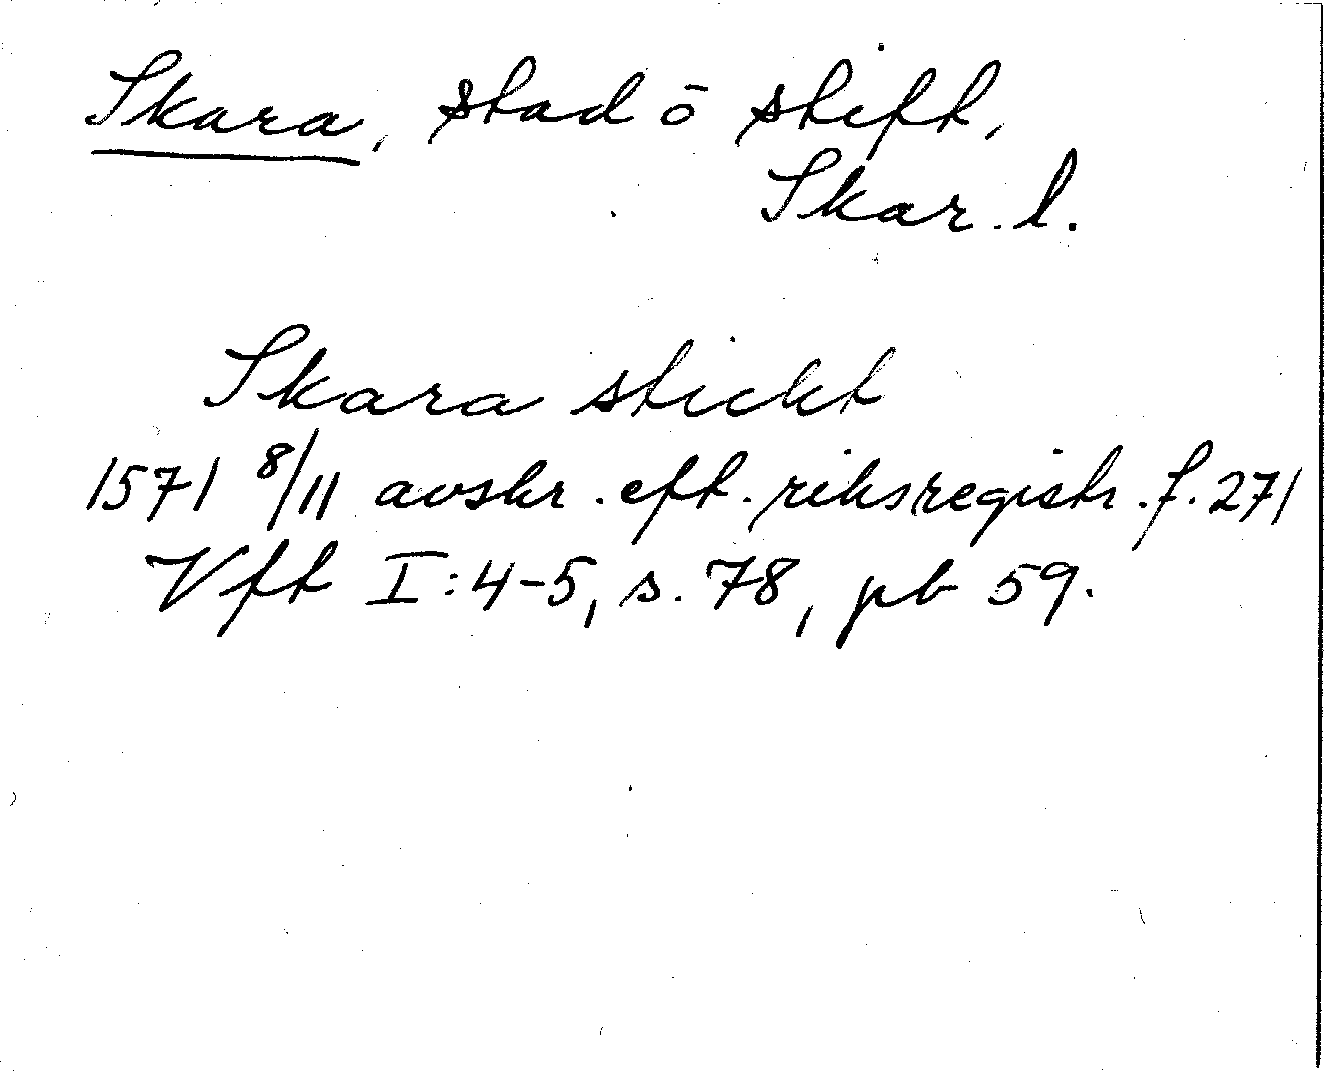 Skara, stad ō stift,
Skar. l.
Skara stickt
1571 8/11 avskr. eft. riksregistr. f. 271
Vft I:4-5, s. 78, pb 59.